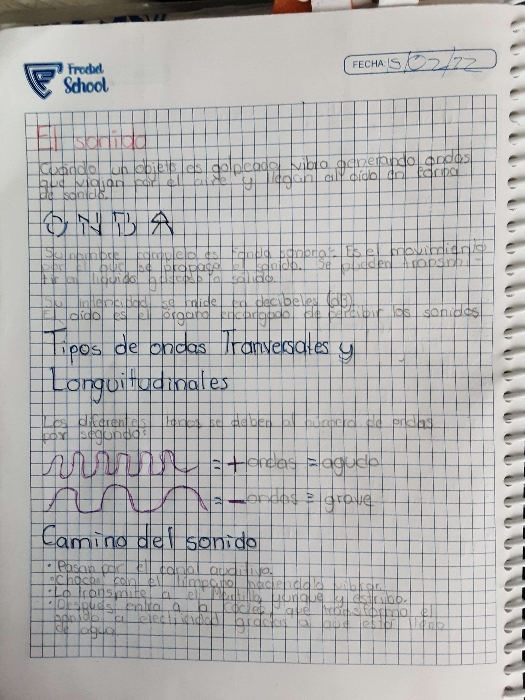 Froebel
School
FECHA: 5/02/22
El sonido
Cuando un objeto es golpeado, vibra generando ondas
que viajan por el aire y llegan al oido en forma
de sonido.
ONDA
Su nombre completo es "onda sonora". Es el movimiento
por que se propaga el sonido. Se pueden transmi-
tir al liquido gaseoso
Su intencidad se mide en decibeles (dB)
El oido es el órgano encargado de percibir los sonidos
Tipos de ondas Tranversales y
Longuitudinales
Los diferentes tonos se deben al número de ondas
por segundo:
= + ondas = agudo
= - ondas = grave
Camino del sonido
• Pasan por el canal auditivo.
• Chocan con el timpano haciendolo vibrar.
• Lo transmite a el Martillo yunque y estribo.
• Después entra a la que transforma el
sonido a electricidad gracias a que esta lleno
de agua